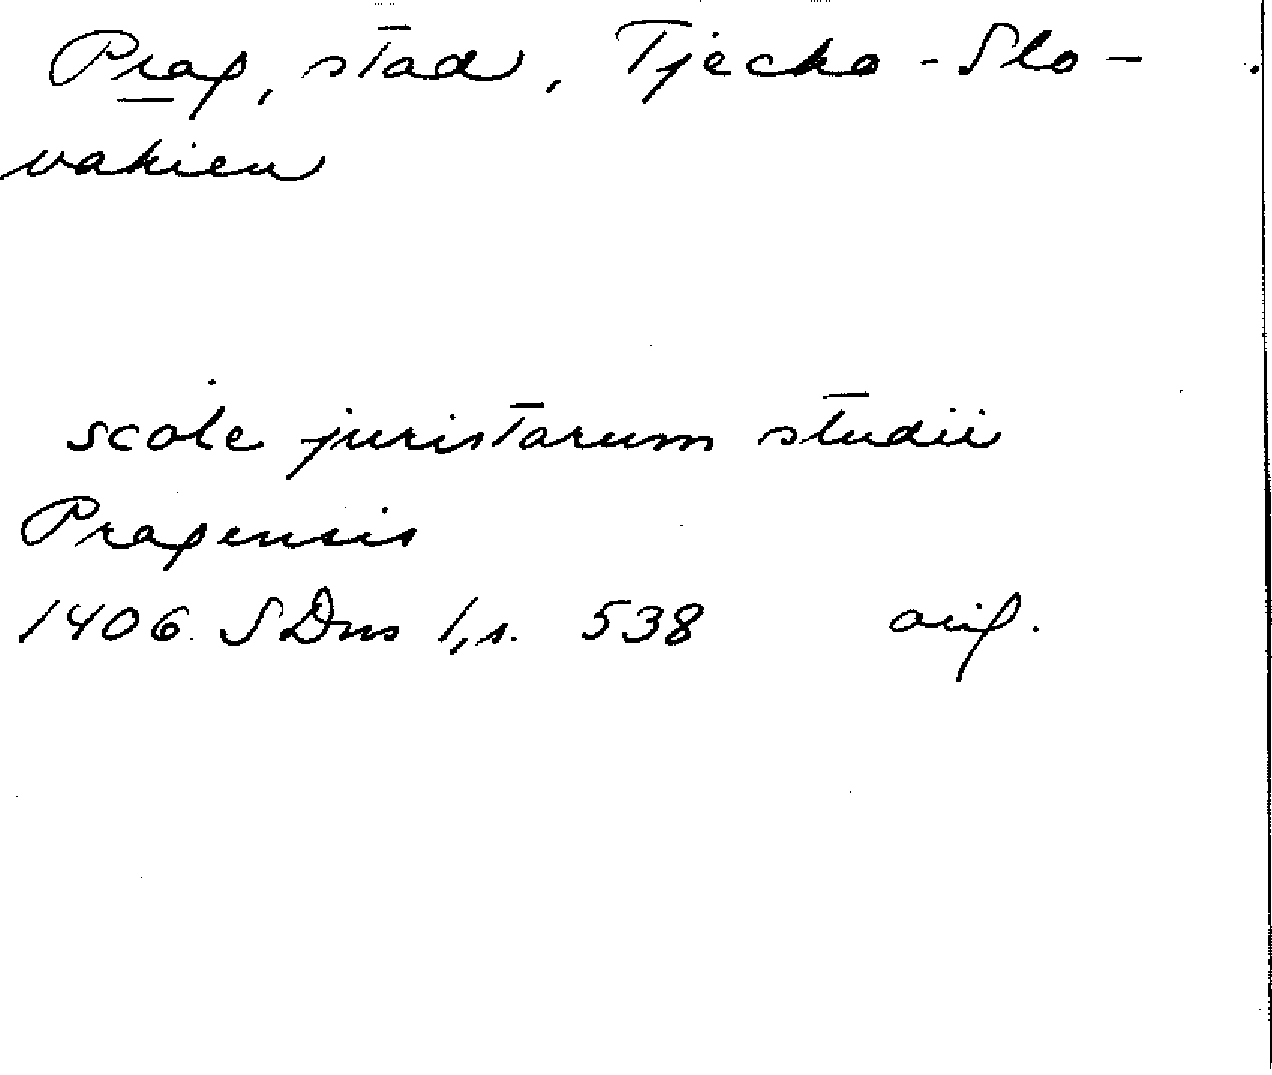 Prag, stad, Tjecko-Slo-
vakien
scole juristarum studii
Pragensis
1406 SDns 1, s. 538 orig.